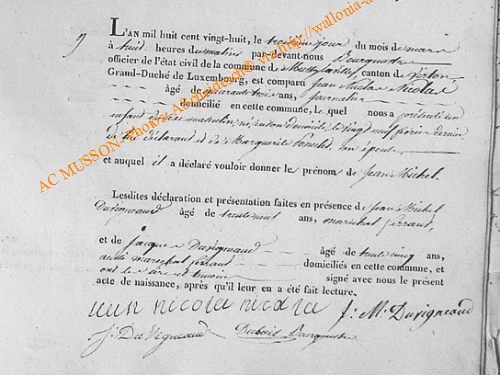 9
L'AN mil huit cent vingt-huit, le troisième jour du mois de mars
à huit heures du matin par-devant nous Bourguet
officier de l'état civil de la commune de canton de Virton
Grand-Duché de Luxembourg, est comparu Jean Nicolas Nicolas
âgé de quarante trois ans, journalier
domicilié en cette commune, le quel nous a présenté un
enfant du sexe masculin, né en son domicile, le vingt neuf février dernier
de lui déclarant et de Marguerite son épouse
et auquel il a déclaré vouloir donner les prénoms de Jean Michel.
Lesdites déclaration et présentation faites en présence de Jean Michel
Duvigneaud âgé de trente neuf ans, maréchal ferrant,
et de Jacques Duvigneaud âgé de trente cinq ans,
aussi maréchal ferrant domiciliés en cette commune, et
ont le père et témoins signé avec nous le présent
acte de naissance, après qu'il leur en a été fait lecture.
Jean nicola nicola J: M. Duvigneaud
J: DuVigneaud Dubois
AC MUSSON Photos: A.Schanesch© via http://wallonia-a